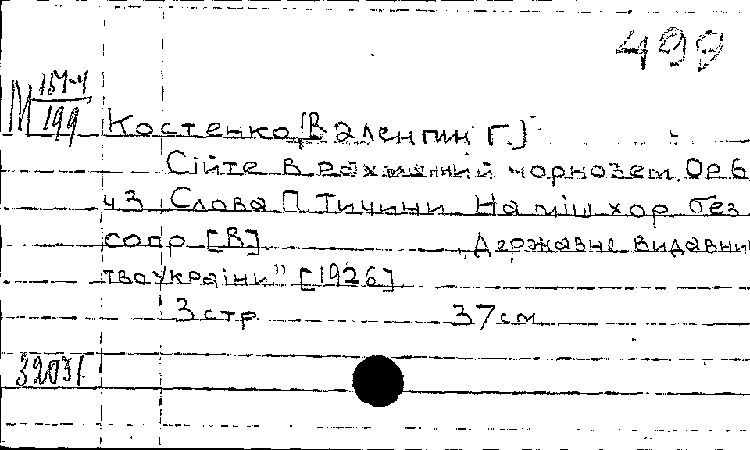 499
М 154-4
199
Костенко, [Валентин Г.]
Сійте в рахманний чорнозем. Ор 6
ч3 Слова П Тичини На міш хор без
сопр [В] „Державне видавни
тво України" [1926]
3 стр 37 см
32031